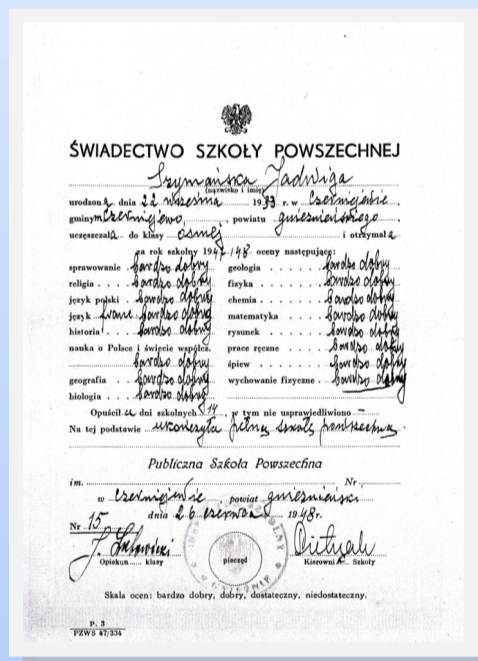 ŚWIADECTWO SZKOŁY POWSZECHNEJ
Szymańska Jadwiga
(nazwisko i imię)
urodzona dnia 22 września 1933 r. w Czerniejewie,
gminy Czerniejewo, powiatu gnieźnieńskiego
uczęszczała do klasy ósmej i otrzymała
za rok szkolny 1947/48 oceny następujące:
sprawowanie bardzo dobry geologia bardzo dobry
religia bardzo dobry fizyka bardzo dobry
język polski bardzo dobry chemia bardzo dobry
język franc. bardzo dobry matematyka bardzo dobry
historia bardzo dobry rysunek bardzo dobry
nauka o Polsce i świecie współcz. prace ręczne bardzo dobry
bardzo dobry śpiew bardzo dobry
geografia bardzo dobry wychowanie fizyczne bardzo dobry
biologia bardzo dobry
Opuścił a dni szkolnych 14, w tym nie usprawiedliwiono —
Na tej podstawie ukończyła pełną szkołę powszechną.
Publiczna Szkoła Powszechna
im. Nr
w Czerniejewie, powiat gnieźnieński
dnia 26 czerwca 1948 r.
Nr 15
Opiekun klasy pieczęć Kierownik Szkoły
Skala ocen: bardzo dobry, dobry, dostateczny, niedostateczny.
P. 3
PZWS 47/334